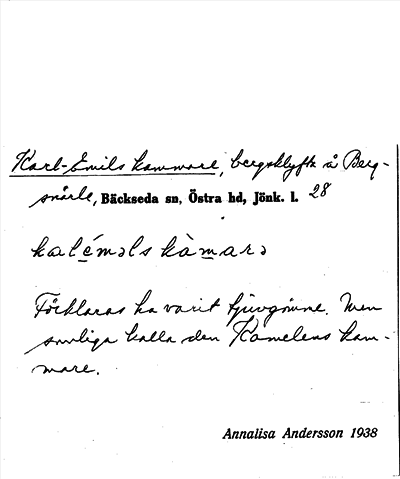 Karl-Emils kammare, bergsklyfta å Berg-
snårle, Bäckseda sn, Östra hd, Jönk. l. 28
kaléməls kàmarə
Förklaras ha varit tjuvgömme. Men
somliga kalla den Kamelens kam-
mare.
Annalisa Andersson 1938